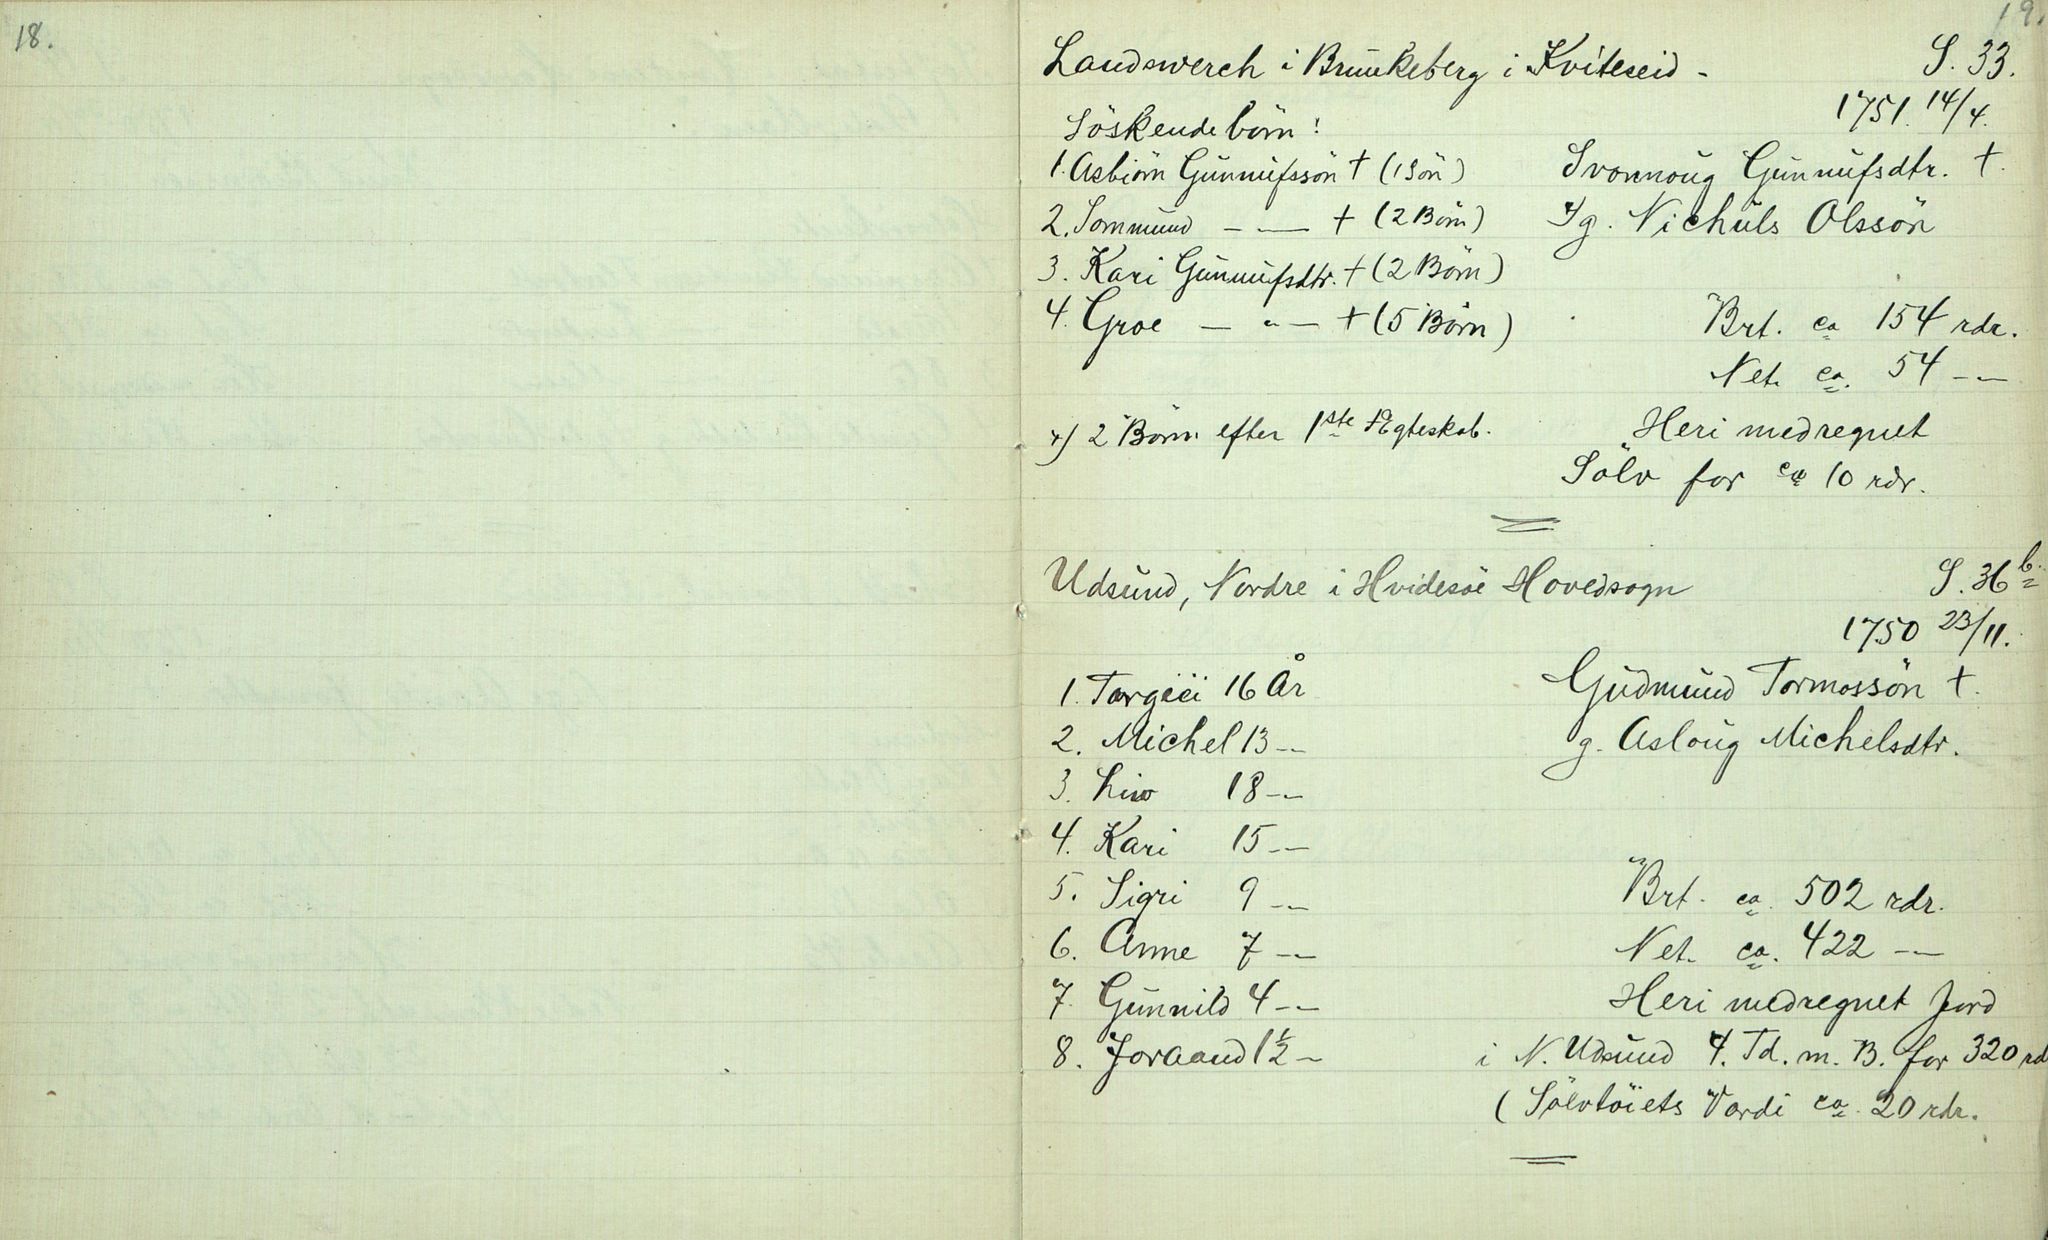 18.
19.
Landswerch i Brunkeberg i Kviteseid - S. 33.
1751. 14/4.
Söskendebörn:
1. Asbiörn Gunnufssön † (1 Sön) Svonnoug Gunnufsdtr. †.
2. Tommund - — † (2 Börn) g. Nichuls Olssön
3. Kari Gunnufsdtr. † (2 Börn)
4. Groe — " — † (5 Börn) Brt. ca 154 rdr.
Net. ca. 54 -"-
x) 2 Börn efter 1ste Ægteskab. Heri medregnet
Sölv for ca 10 rdr.
Udsund, Nordre i Hvidesöe Hovedsogn S. 36 b.
1750 23/11.
1. Torgeei 16 År Gudmund Tormossön †.
2. Michel 13 -"- g. Asloug Michelsdtr.
3. Liw 18 -"-
4. Kari 15 -"-
5. Sigri 9 -"- Brt. ca. 502 rdr.
6. Anne 7 -"- Net. ca. 422 -"-
7. Gunnild 4 -"- Heri medregnet Jord
8. Joraand 1½ - i N. Udsund 4. Td. m. B. for 320 rd
(Sölvtöiets Værdi ca. 20 rdr.